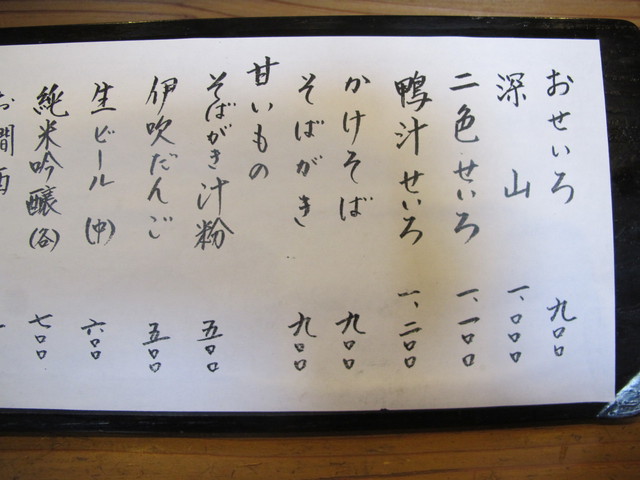 おせいろ 九〇〇
深山 一、〇〇〇
二色せいろ 一、一〇〇
鴨汁せいろ 一、二〇〇
かけそば 九〇〇
そばがき 九〇〇
甘いもの
そばがき汁粉 五〇〇
伊吹だんご 五〇〇
生ビール(中) 六〇〇
純米吟醸(各) 七〇〇
お燗酒